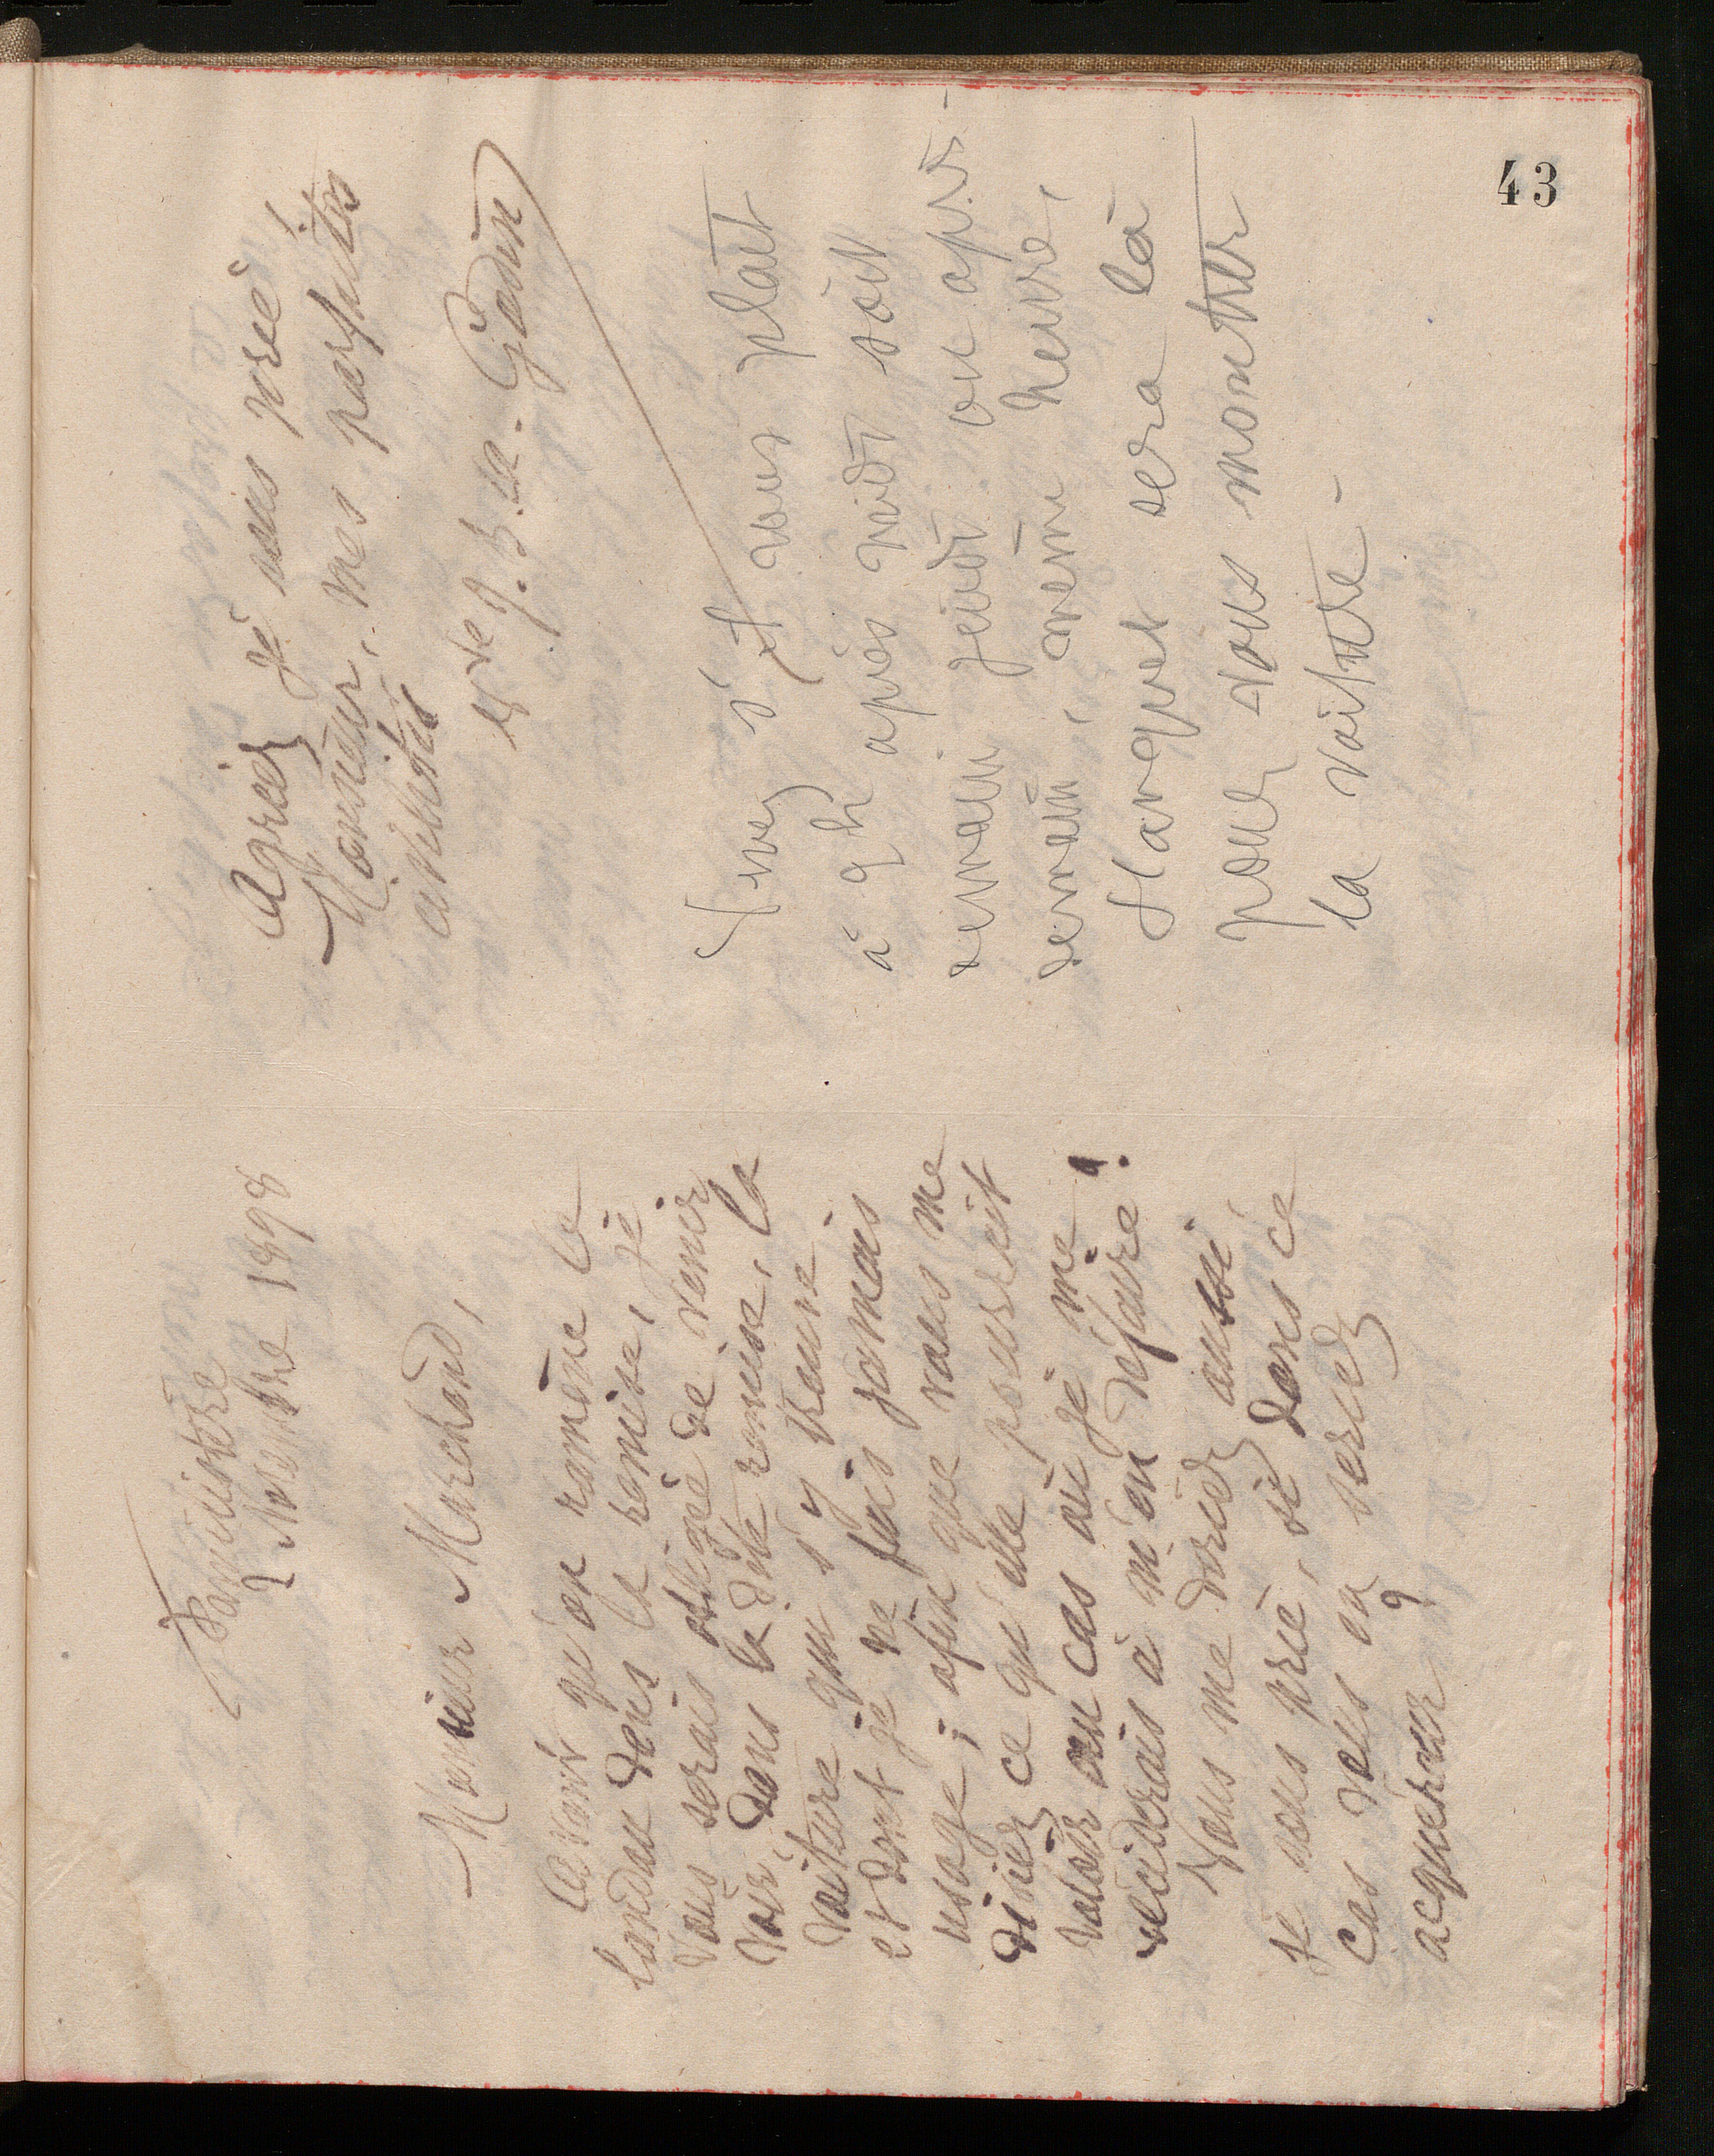 43
Familistère
2 Novembre 1898
Monsieur Marchand,
Avant qu'on ramène le
landau dans la remise, je
vous serais obligée de venir
voir, dans la dite remise, la
voiture qui s'y trouve
et dont je ne fais jamais
usage; afin que vous me
disiez ce qu'elle pourrait
valoir au cas où je me
déciderais à m'en défaire.
Vous me direz aussi
je vous prie, si dans ce
cas vous en seriez
acquéreur?
Agréez je vous prie
Monsieur, mes parfaites
civilités
Vve J. B. A. Godin
Soyez s'il vous plaît
à 9h après midi soit
demain jeudi ou après-
demain, même heure,
pour vous montrer
la voiture -